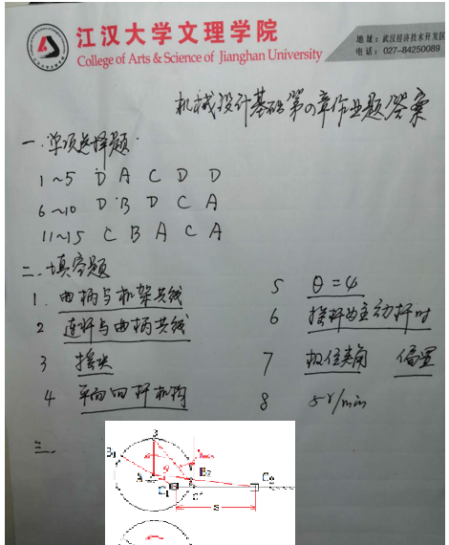 江汉大学文理学院
College of Arts & Science of Jianghan University
地址:武汉经济技术开发区
电话:027-84250089
机械设计基础第0章作业题答案
一.单项选择题
1~5 D A C D D
6~10 D B D C A
11~15 C B A C A
二.填空题
1. 曲柄与机架共线
2 连杆与曲柄共线
3 摇块
4 平面四杆机构
5 θ=ψ
6 摇杆为主动杆时
7 极位夹角 偏置
8 5r/min
三.
3
B1
B2
A
C1
C2
s